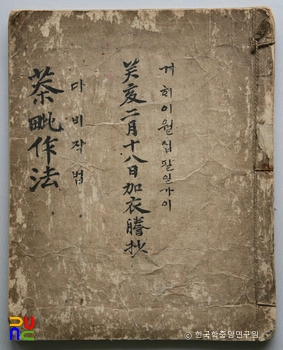 게히이월십팔일가이
癸亥二月十八日加衣謄抄
다비작법
茶毗作法
© 한국학중앙연구원